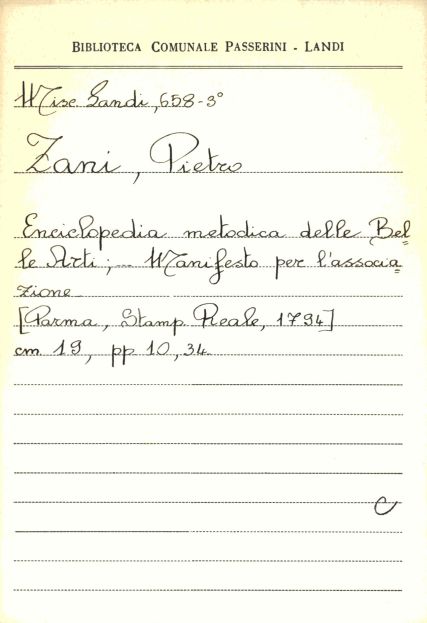 BIBLIOTECA COMUNALE PASSERINI - LANDI
Misc Landi, 658-3°
Zani, Pietro
Enciclopedia metodica delle Bel=
le Arti;... Manifesto per l'associa=
zione
[Parma, Stamp Reale, 1794]
cm 19, pp 10, 34.
C